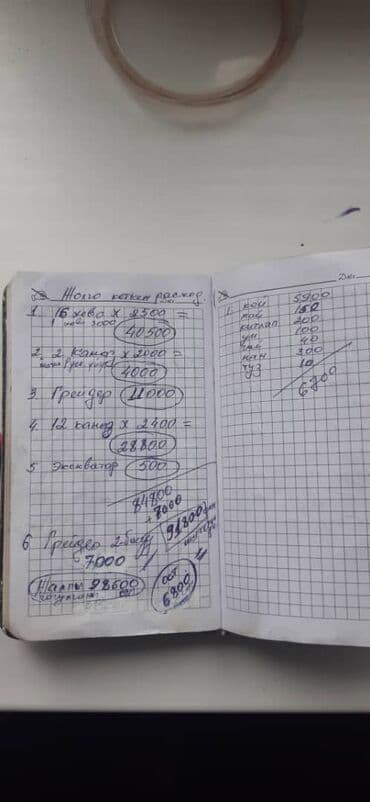 Жолго кеткен расход.
1. 16 ховo х 2500 =
1 ховo 3000
40500
2. 2 Камаз х 2000 =
4000
3. Грейдер 11000
4. 12 камаз х 2400 =
28800
5. Экскватор 500
84800
+ 7000
91800
6 Грейдер 2
7000
Жалпы 98600
ост
6800
1. кой 5900
май 150
200
100
40
нан 300
туз 10
6700